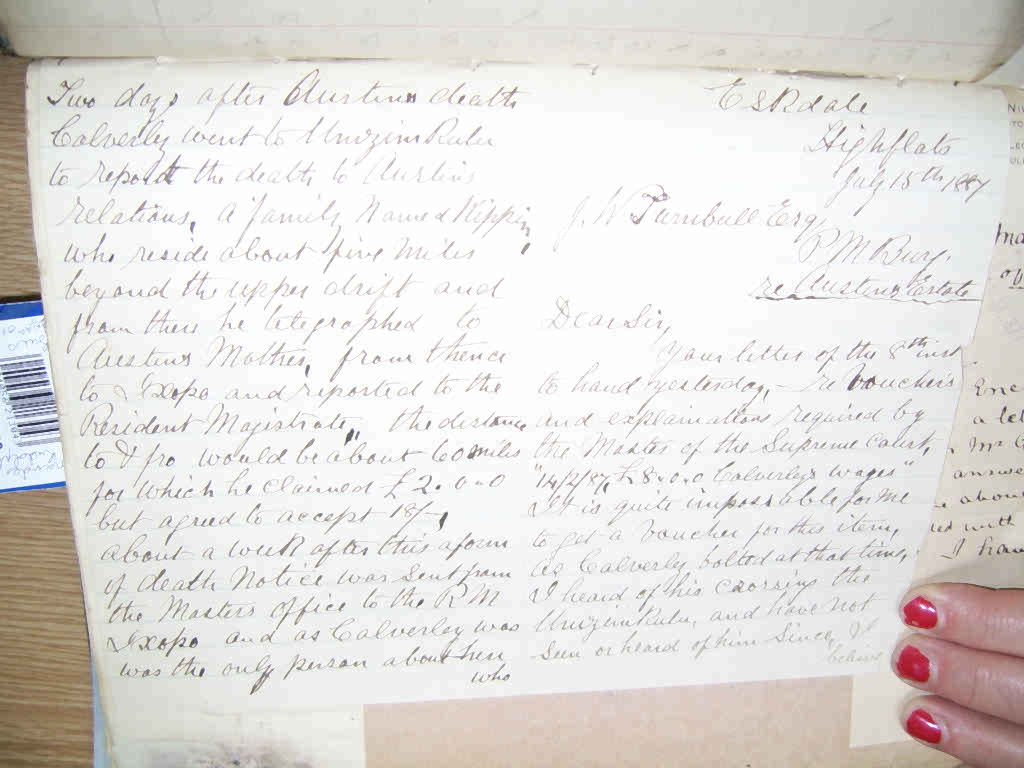 Eskdale
Highflats
July 15th 1887
J. W Turnbull Esq,
P M Burg.
re Austins Estate
Dear Sir,
Your letter of the 8th inst
to hand yesterday, - re Vouchers
and explainations required by
the Master of the Supreme Court,
"14/2/87, £8.0.0 Calverley's wages"
It is quite impossable for me
to get a Voucher for this item,
as Calverley bolted at that time,
I heard of his crossing the
UmzimKulu, and have not
seen or heard of him since, I
beleive
Two days after Austins death
Calverley went to UmzimKulu
to report the death to Austins
relations, a family named Kippin,
who reside about five miles
beyond the upper drift and
from there he telegraphed to
Austins Mother, from thence
to Ixopo and reported to the
Resident Majistrate, the distance
to & fro would be about 60 miles
for which he claimed £2.0.0
but agreed to accept 18/-,
about a week after this a form
of death Notice was sent from
the Masters office to the R M
Ixopo and as Calverley was
was the only person about here
who